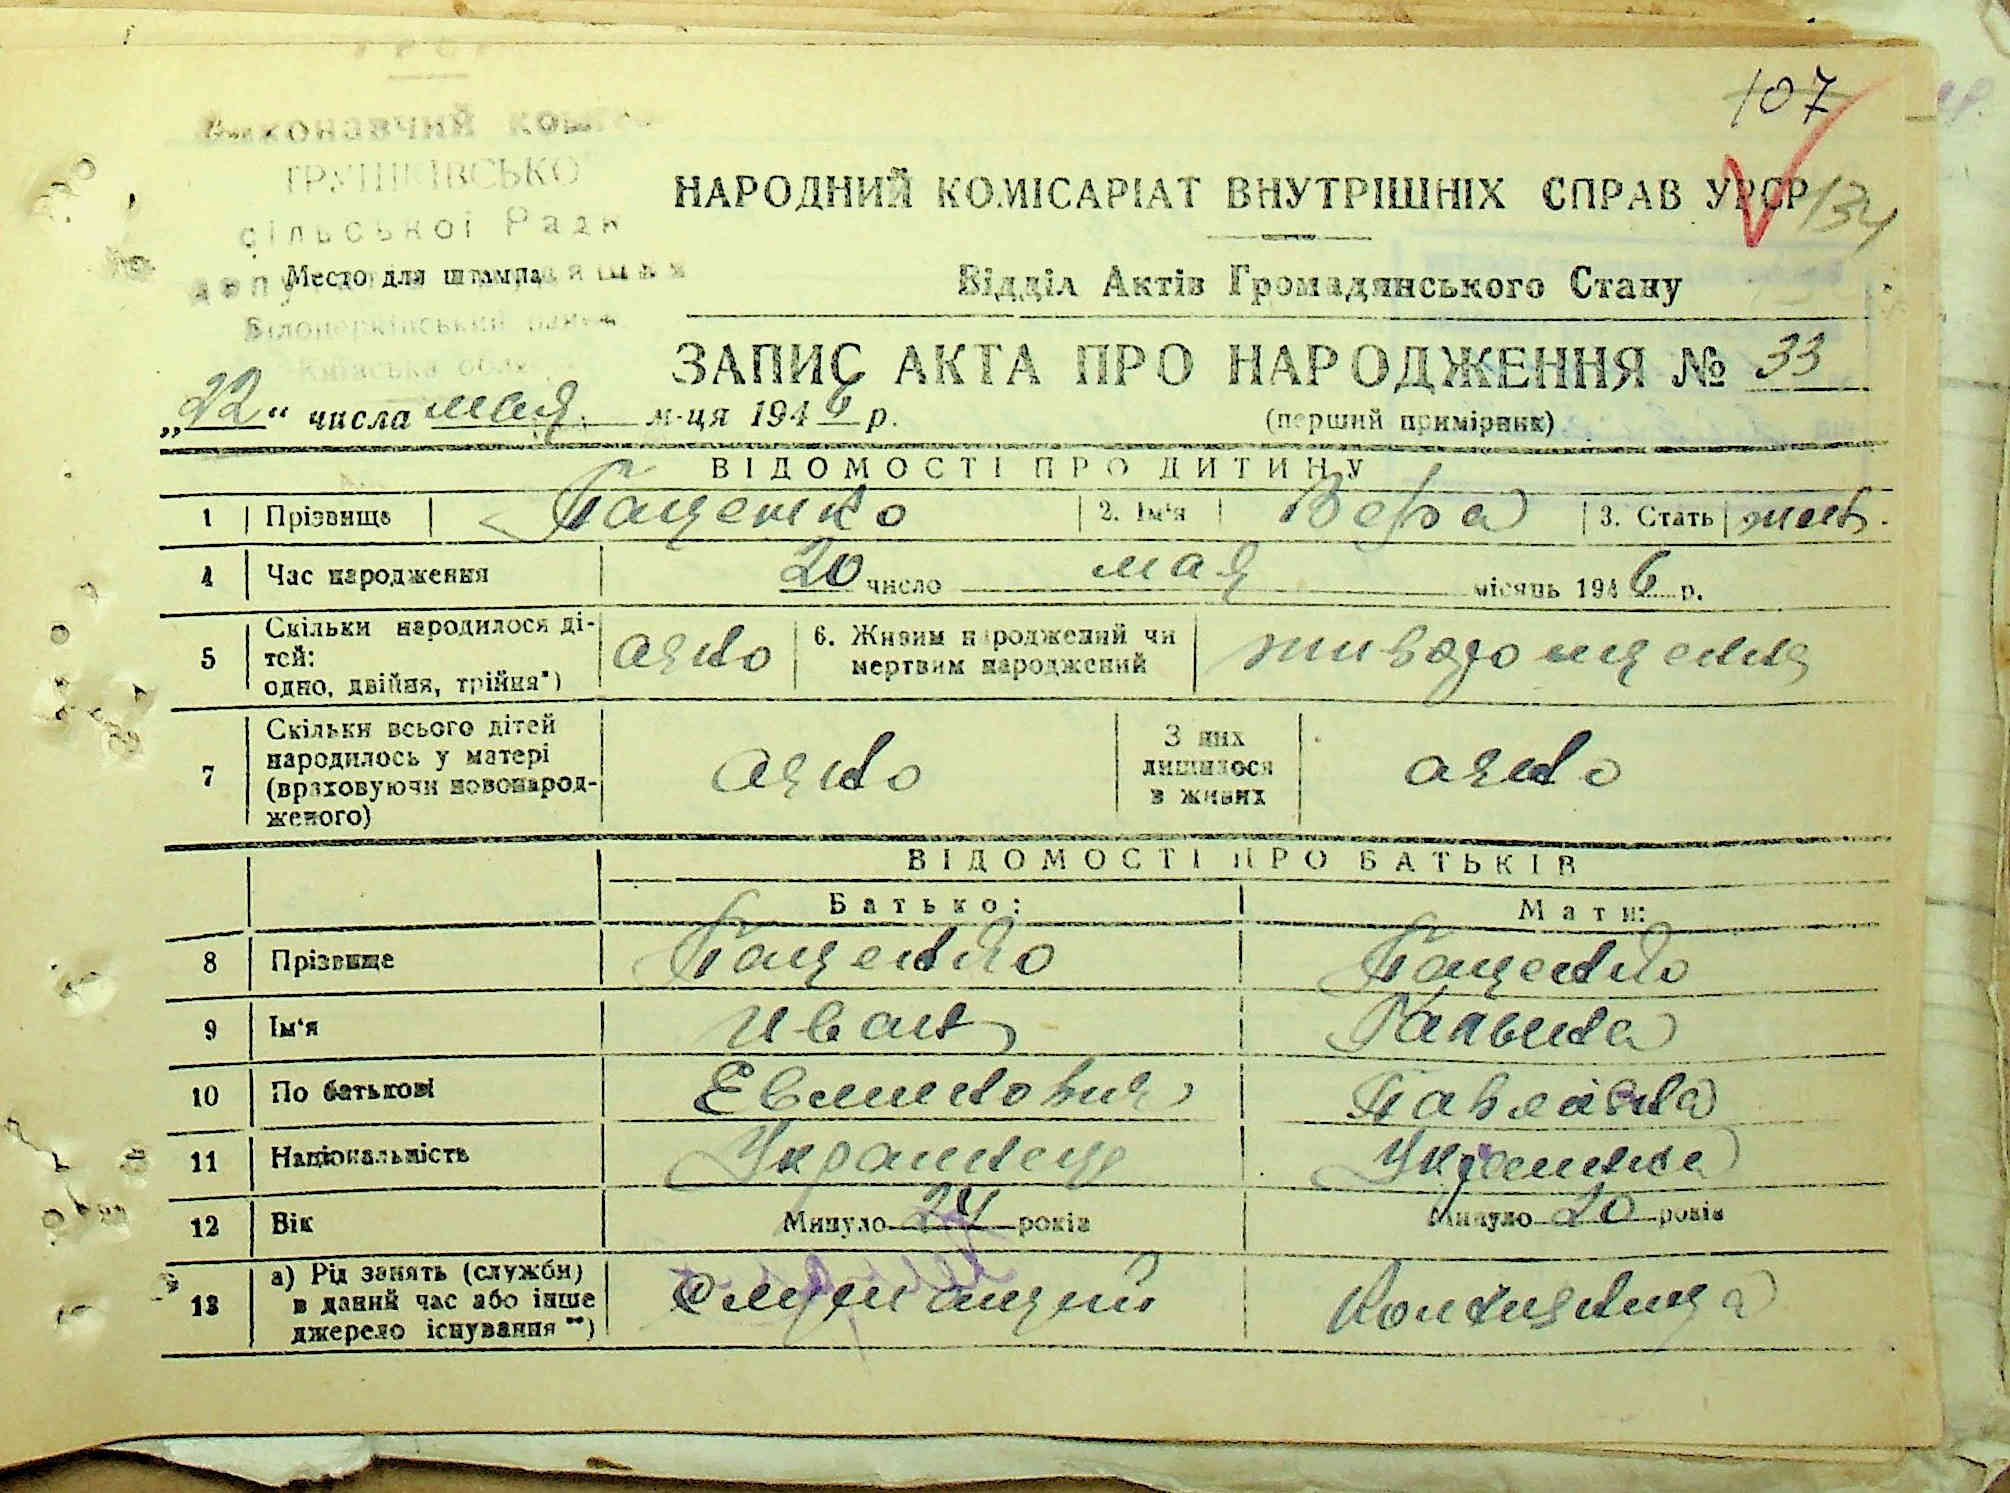 107
134
Виконавчий
сільської Ради
Київська
Место для штампа
НАРОДНИЙ КОМІСАРІАТ ВНУТРІШНІХ СПРАВ УРСР
Відділ Актів Громадянського Стану
ЗАПИС АКТА ПРО НАРОДЖЕННЯ № 33
„22“ числа мая м-ця 1946 р.
(перший примірник)
ВІДОМОСТІ ПРО ДИТИНУ
1 Прізвище Пащенко 2. Ім'я Вера 3. Стать жен.
4 Час народження 20 число мая місяць 1946 р.
5 Скільки народилося ді-
тей:
одно, двійня, трійня*) одно 6. Живим народжений чи
мертвим народжений
7 Скільки всього дітей
народилось у матері
(враховуючи новонарод-
женого) одно З них
лишилося
в живих одно
ВІДОМОСТІ ПРО БАТЬКІВ
Батько: Мати:
8 Прізвище Пащенко Пащенко
9 Ім'я Иван Галына
10 По батькові Павловна
11 Національність Украинец Украинка
12 Вік Минуло 24 років Минуло 20 років
13 а) Рід занять (служби)
в даний час або інше
джерело існування**) Служащий